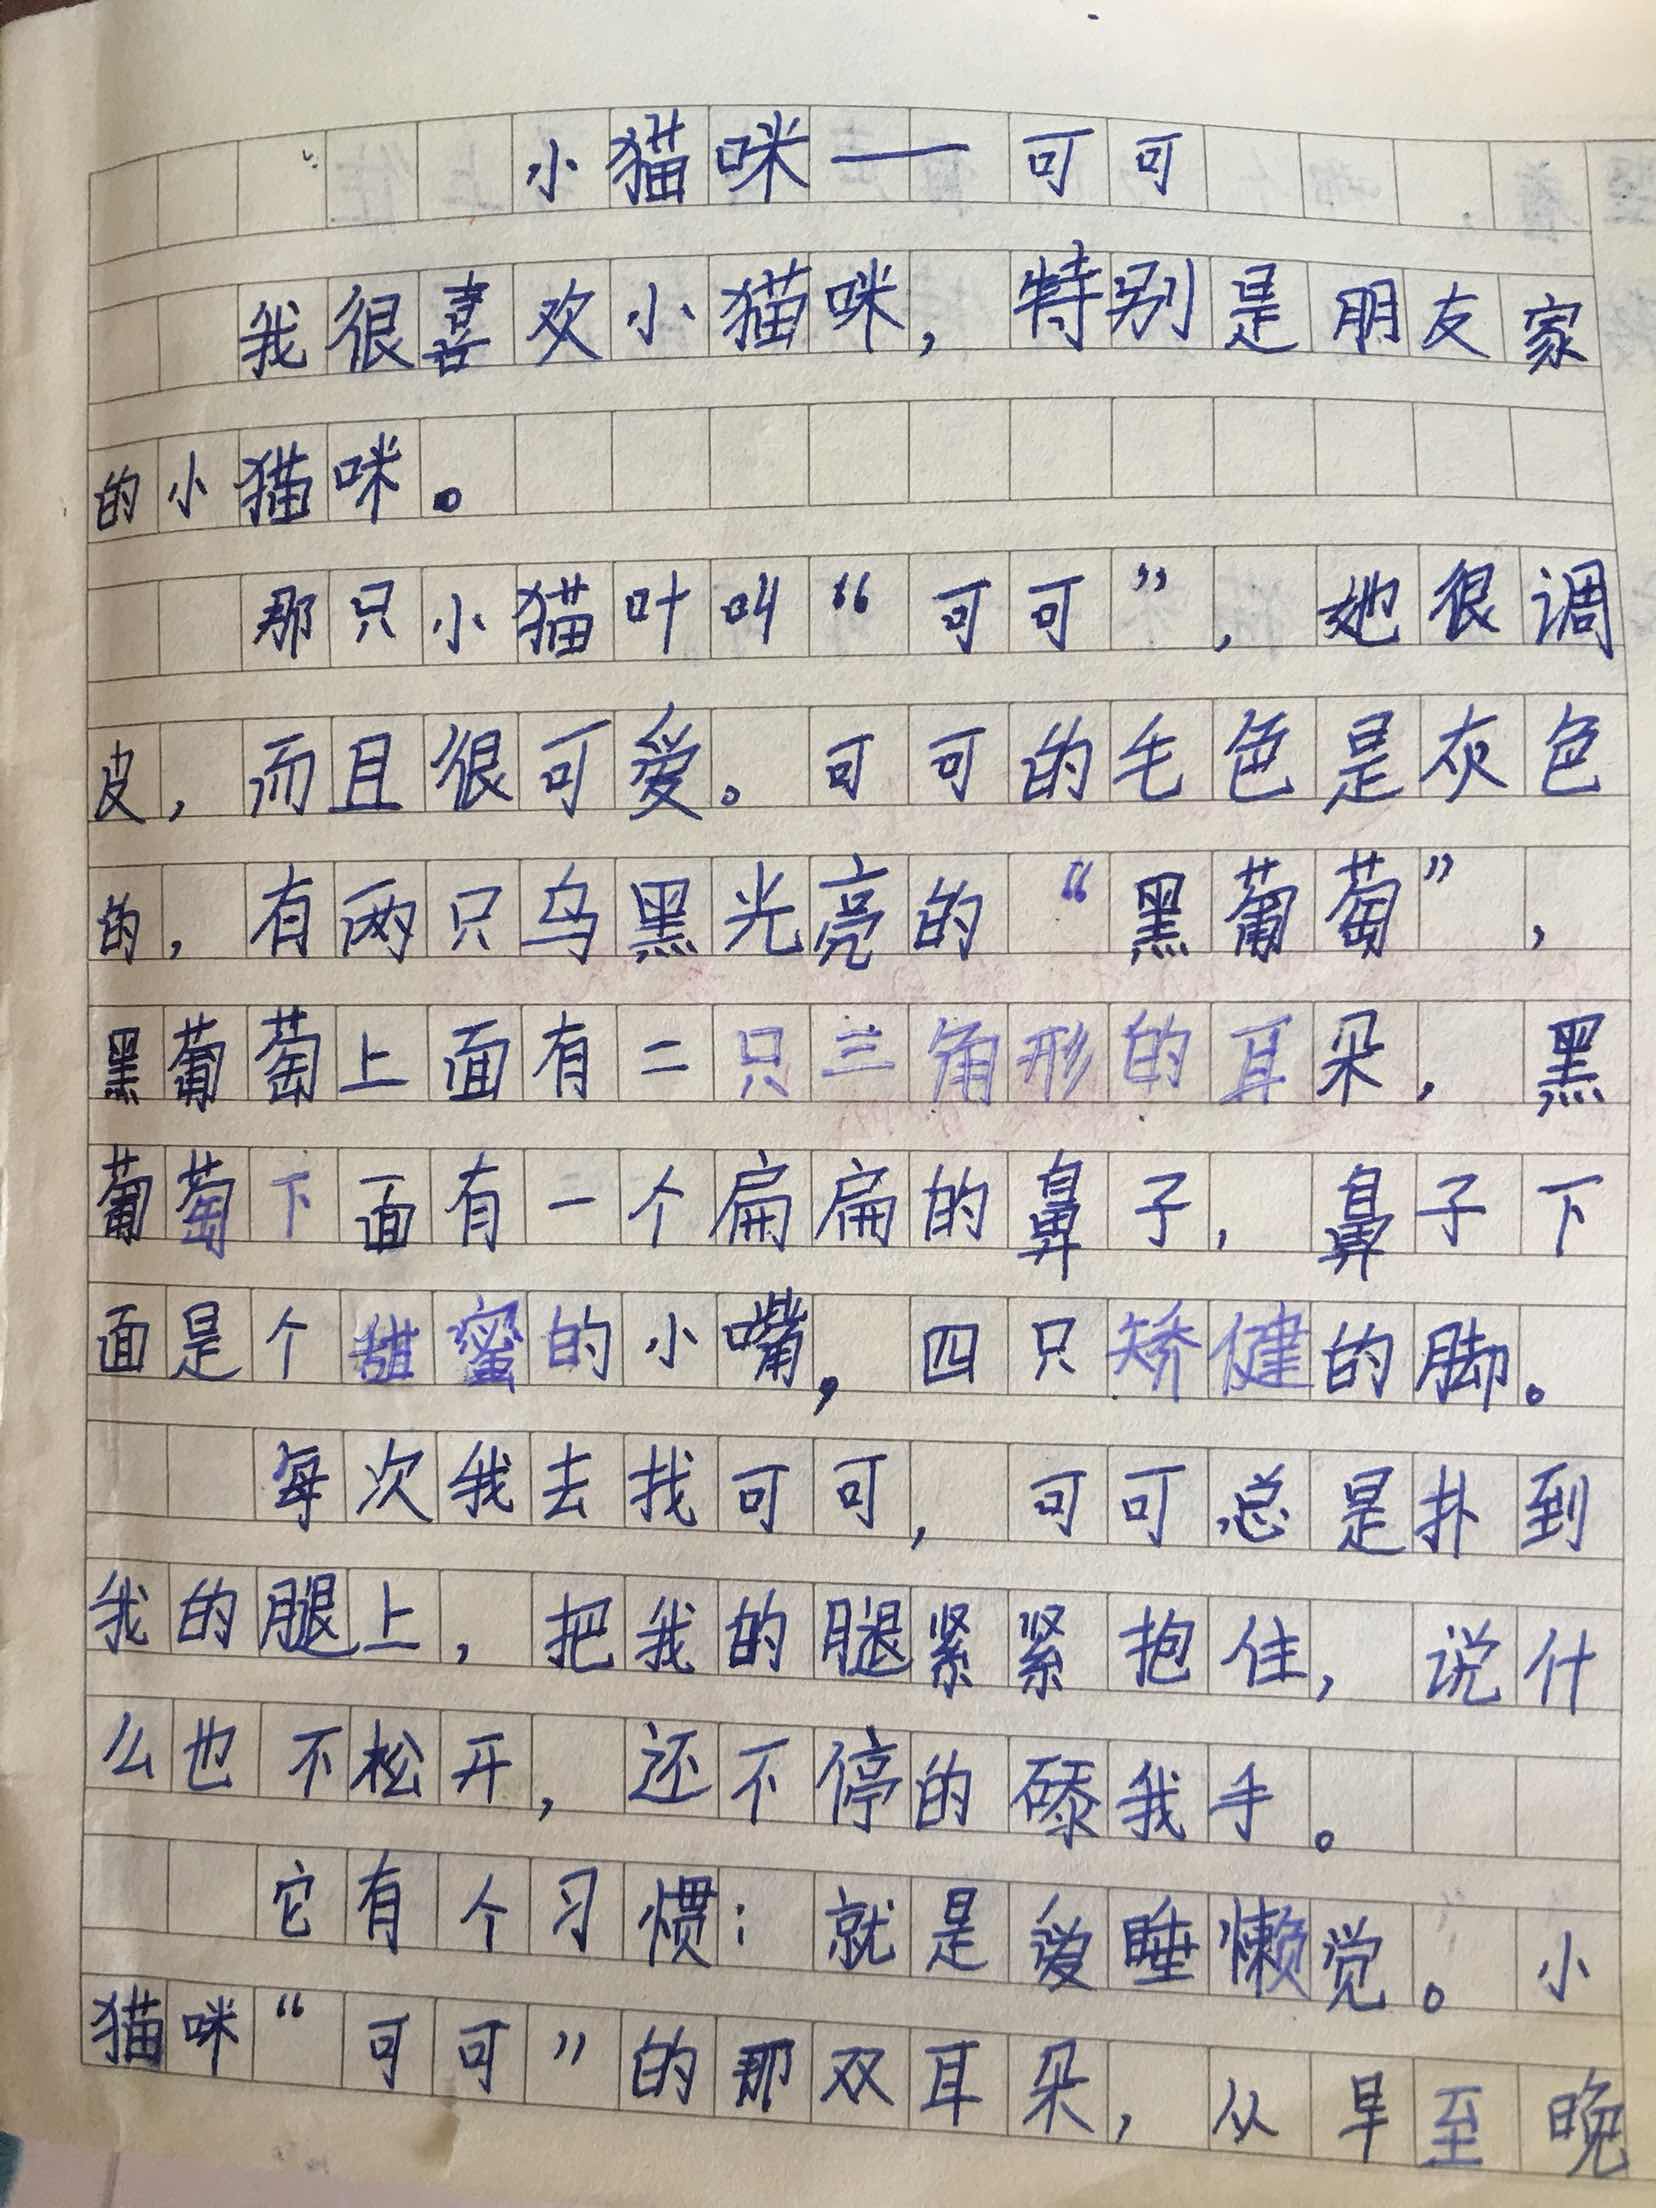 小猫咪——可可
我很喜欢小猫咪，特别是朋友家
的小猫咪。
那只小猫叶叫“可可”，她很调
皮，而且很可爱。可可的毛色是灰色
的，有两只乌黑光亮的“黑葡萄”，
黑葡萄上面有二只三角形的耳朵，黑
葡萄下面有一个扁扁的鼻子，鼻子下
面是个甜蜜的小嘴，四只矫健的脚。
每次我去找可可，可可总是扑到
我的腿上，把我的腿紧紧抱住，说什
么也不松开，还不停的我手。
它有个习惯：就是爱睡懒觉。小
猫咪“可可”的那双耳朵，从早至晚